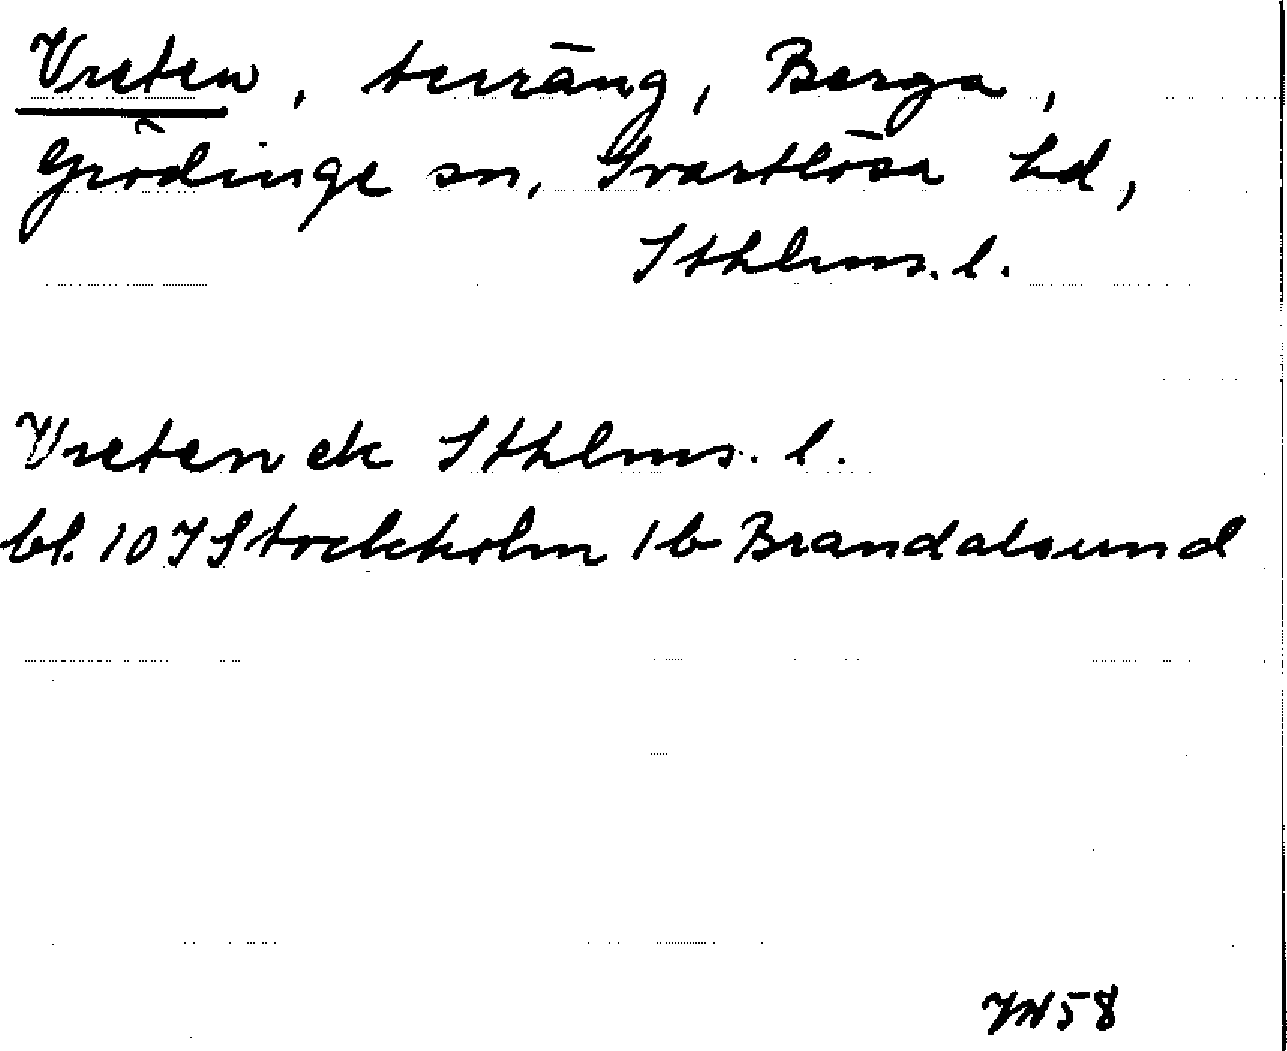 Vreten, terräng, Berga,
Grödinge sn, Svartlösa hd,
Sthlms. l.
Vreten ek Sthlms. l.
bl. 10 I Stockholm 1 b Brandalsund